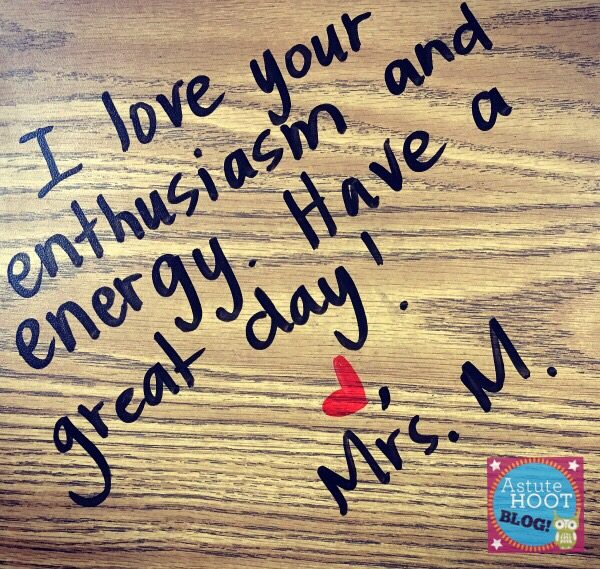 I love your
enthusiasm and
energy. Have a
great day!
,
Mrs. M.
Astute
HOOT
BLOG!